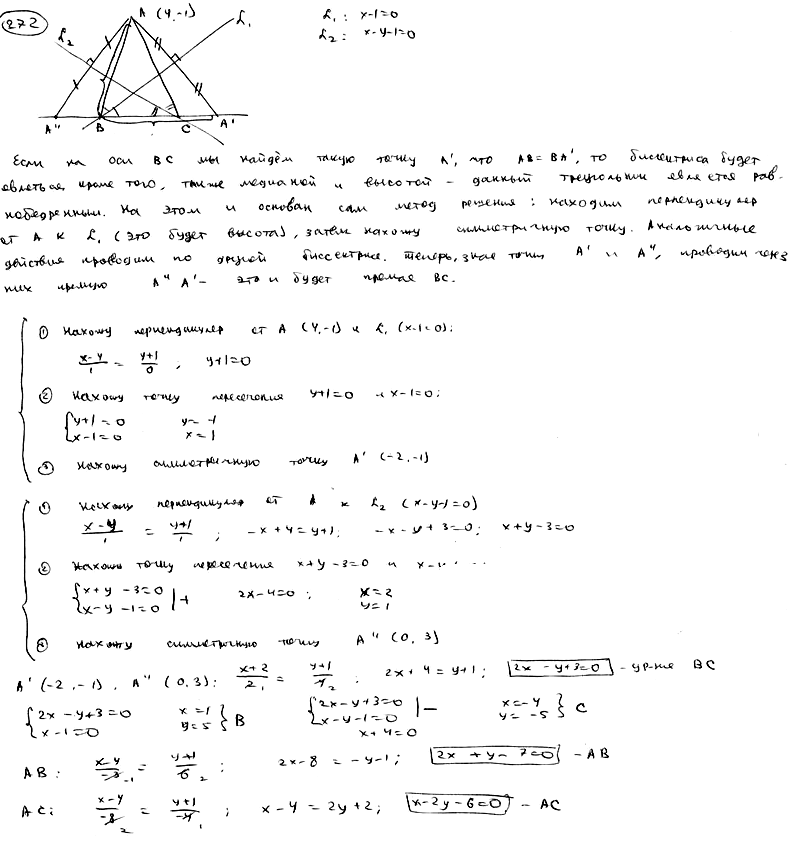 272
A (4,-1)
L₁
L₂
A" B C A'
L₁: x-1=0
L₂: x-y-1=0
Если на оси BC мы найдём такую точку A', что AB=BA', то биссектриса будет
являться, кроме того, также медианой и высотой - данный треугольник является рав-
нобедренным. На этом и основан сам метод решения: находим перпендикуляр
от A к L₁ (это будет высота), затем нахожу симметричную точку. Аналогичные
действия проводим по другой биссектрисе. Теперь, зная точки A' и A", проводим через
них прямую A"A' - это и будет прямая BC.
① Нахожу перпендикуляр от A (4,-1) к L₁ (x-1=0):
(x-4)/1 = (y+1)/0 ; y+1=0
② Нахожу точку пересечения y+1=0 и x-1=0:
{y+1=0 y=-1
{x-1=0 x=1
③ Нахожу симметричную точку A' (-2,-1)
① Нахожу перпендикуляр от A к L₂ (x-y-1=0)
(x-4)/1 = (y+1)/1 ; -x+4=y+1; -x-y+3=0; x+y-3=0
② Нахожу точку пересечения x+y-3=0 и x-
{x+y-3=0
{x-y-1=0 |+ 2x-4=0; x=2 y=1
Нахожу симметричную точку A" (0,3)
A'(-2,-1), A"(0,3): (x+2)/2 1 = (y+1)/4 2 ; 2x+4=y+1; 2x-y+3=0 - ур-ние BC
{2x-y+3=0 x=1 } B {2x-y+3=0 |- x=-4 } C
{x-1=0 y=5 {x-y-1=0 y=-5
x+4=0
AB: (x-4)/-3 -1 = (y+1)/6 2 ; 2x-8=-y-1; 2x+y-7=0 - AB
AC: (x-4)/-8 2 = (y+1)/-4 1 ; x-4=2y+2; x-2y-6=0 - AC